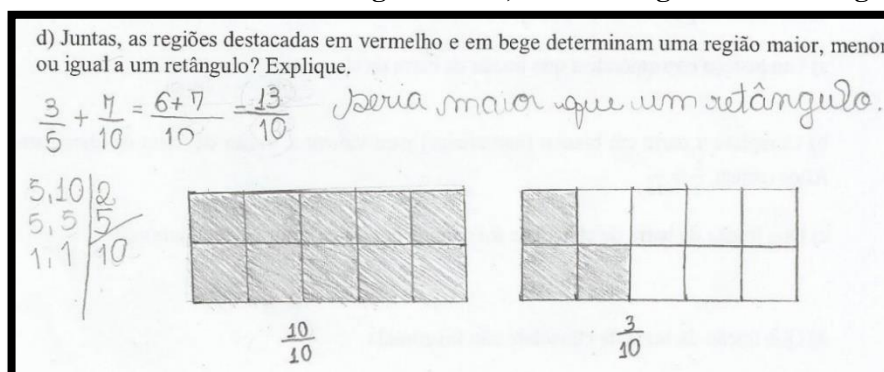 d) Juntas, as regiões destacadas em vermelho e em bege determinam uma região maior, menor
ou igual a um retângulo? Explique.
3/5 + 7/10 = 6+7/10 = 13/10 seria maior que um retângulo.
5,10|2
5,5|5
1,1|10
10/10
3/10